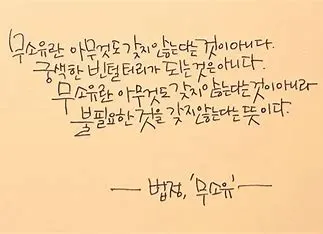 무소유란 아무것도 갖지 않는다는 것이 아니다.
궁색한 빈털터리가 되는 것은 아니다.
무소유란 아무것도 갖지 않는다는 것이 아니라
불필요한 것을 갖지 않는다는 뜻이다.
— 법정, '무소유' —